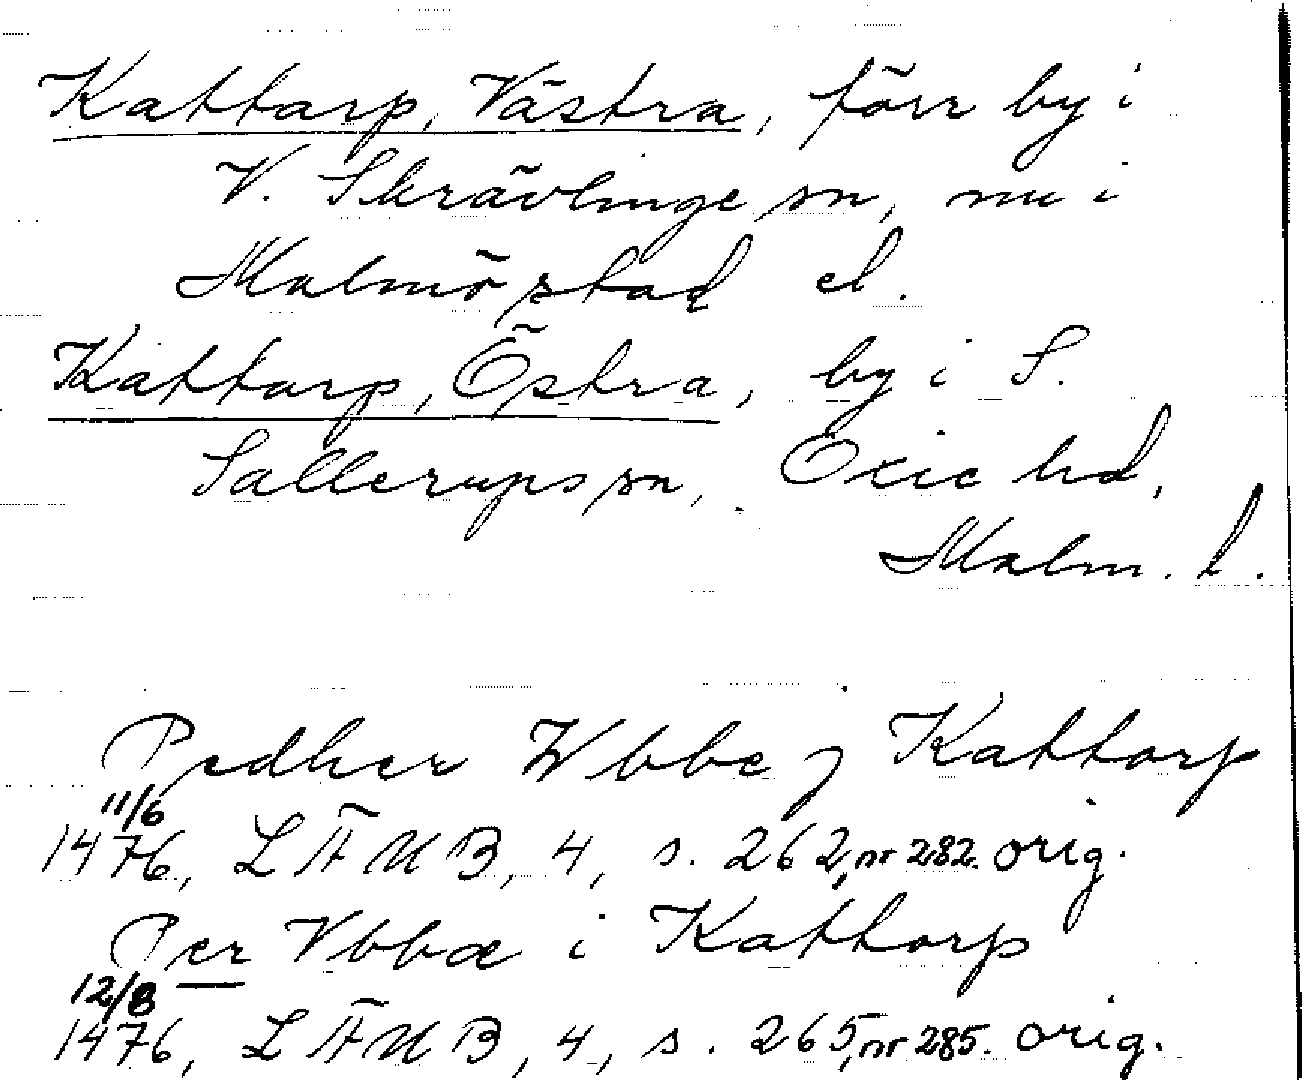 Kattarp, Västra, förr by i
V. Skrävlinge sn, nu i
Malmö stad el.
Kattarp, Östra, by i S.
Sallerups sn, Oxie hd,
Malm. l.
Pedher Wbbe j Kattorp
11/6
1476, LÄUB, 4, s. 262, nr 282. orig.
Per Vbbæ i Kattorp
12/8
1476, LÄUB, 4, s. 265, nr 285. orig.